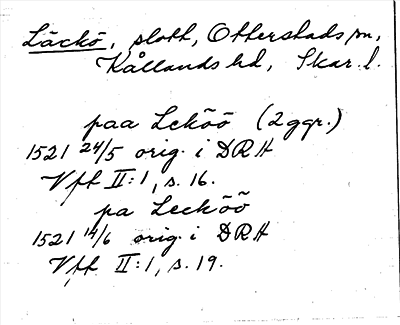 Läckö, slott, Otterstads sn,
Kållands hd, Skar. l.
paa Leköö (2 ggr.)
1521 24/5 orig. i DRA
Vft II:1, s. 16.
pa Lecköö
1521 14/6 orig. i DRA
Vft II:1, s. 19.